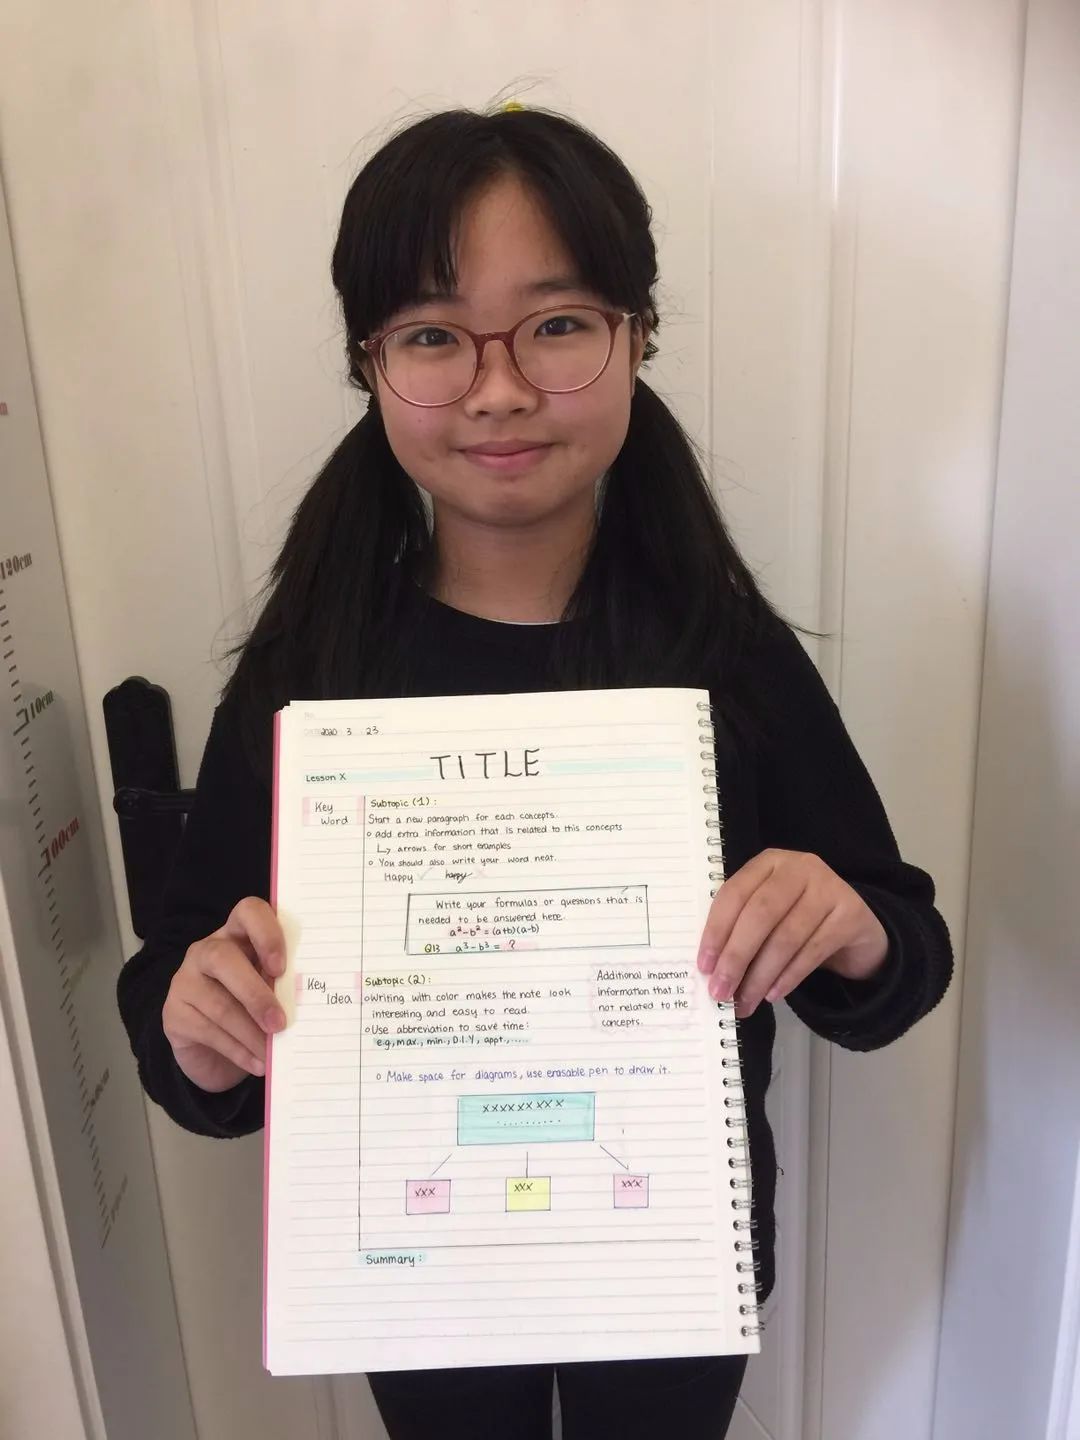 120cm
110cm
100cm
No.
2020 3 23
TITLE
Lesson X
Key
Word
Subtopic (1) :
Start a new paragraph for each concepts.
add extra information that is related to this concepts
arrows for short examples
You should also write your word neat.
Happy ✓ happy ✗
Write your formulas or questions that is
needed to be answered here.
a²-b² = (a+b)(a-b)
Q13 a³-b³ = ?
Key
Idea
Subtopic (2) :
Writing with color makes the note look
interesting and easy to read.
Use abbreviation to save time :
e.g, max., min., D.I.Y, appt.,.....
Additional important
information that is
not related to the
concepts.
Make space for diagrams, use erasable pen to draw it.
XXXXXXXXX
..........
XXX XXX XXX
Summary :